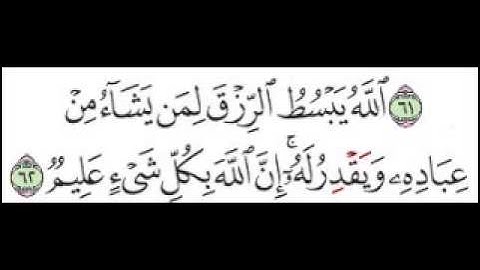 ۝٦١ ٱللَّهُ يَبۡسُطُ ٱلرِّزۡقَ لِمَن يَشَآءُ مِنۡ
عِبَادِهِۦ وَيَقۡدِرُ لَهُۥٓۚ إِنَّ ٱللَّهَ بِكُلِّ شَيۡءٍ عَلِيمٞ ۝٦٢